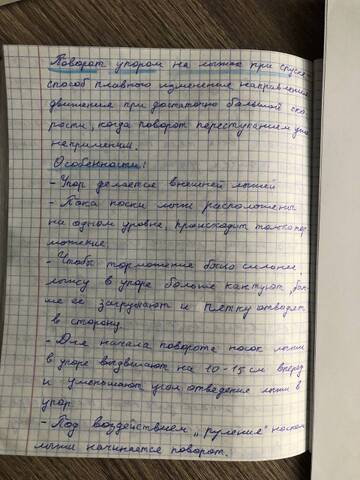 Поворот упором на лыжах при спуске -
способ плавного изменения направления
движения при достаточно большой ско-
рости, когда поворот переступанием уже
неприменим.
Особенности:
- Упор делается внешней лыжей
- Пока носки лыж расположены
на одном уровне, происходит только тор
можение
- Чтобы торможение было сильнее,
лыжу в упоре больше кантуют, боль
ше её загружают и пятку отводят
в сторону
- Для начала поворота носок лыжи
в упоре выдвигают на 10-15 см вперед
и уменьшают угол отведения лыжи в
упор
- Под воздействием "руления" носком
лыжи начинается поворот.